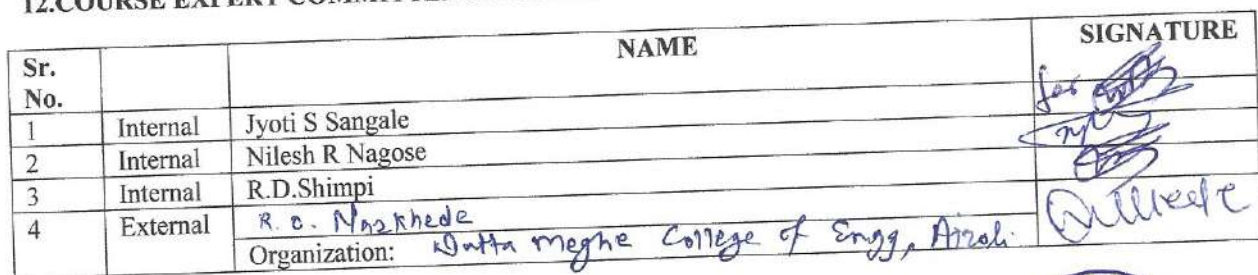 12.COURSE EXPERT
Sr. No. NAME SIGNATURE
1 Internal Jyoti S Sangale for
2 Internal Nilesh R Nagose
3 Internal R.D.Shimpi
4 External R. C. Narkhede
Organization: Datta Meghe College of Engg, Airoli.